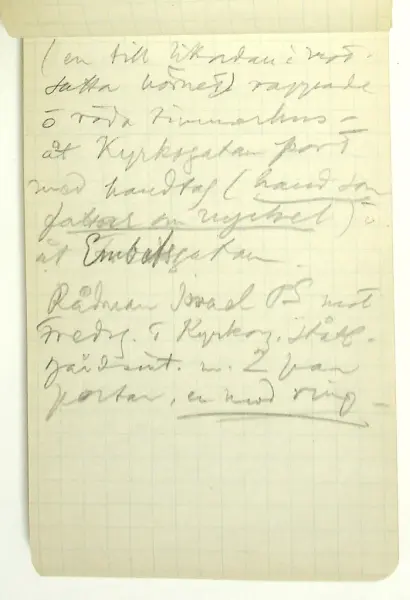 (en till likadan i mot-
satta hörnet) rappade
o röda timmerhus –
åt Kyrkogatan port
med handtag (hand som
fattar om nyckel) o
åt Embetsgatan
Rådman Israel BS mot
Fredrg. o Kyrkog.
m. 2 par
portar, en med ring –